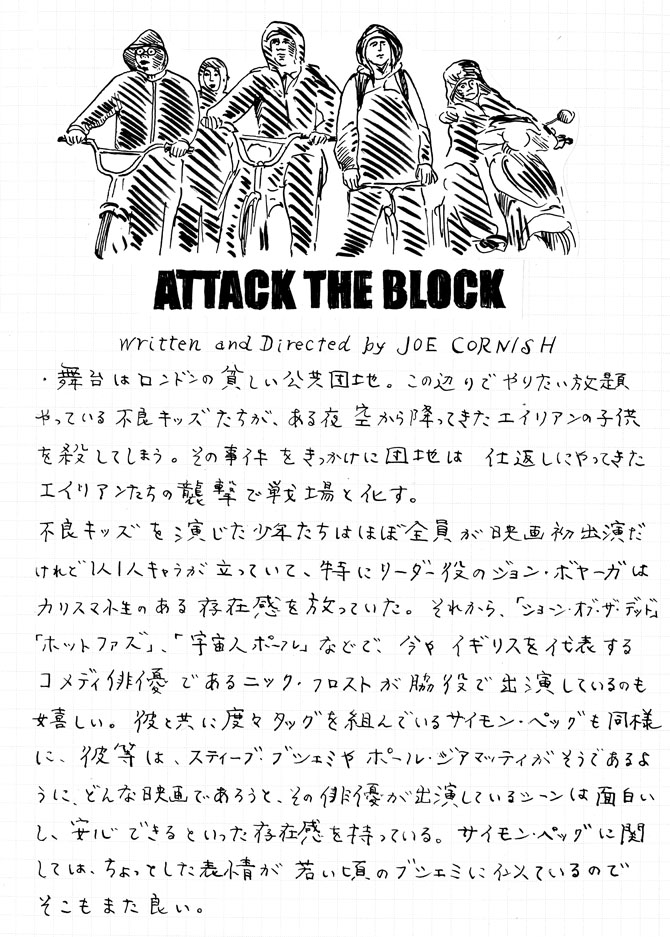 ATTACK THE BLOCK
Written and Directed by JOE CORNISH
・舞台はロンドンの貧しい公共団地。この辺りでやりたい放題
やっている不良キッズたちが、ある夜 空から降ってきたエイリアンの子供
を殺してしまう。その事件をきっかけに団地は 仕返しにやってきた
エイリアンたちの襲撃で戦場と化す。
不良キッズを演じた少年たちはほぼ全員が映画初出演だ
けれど1人1人キャラが立っていて、特にリーダー役のジョン・ボヤーガは
カリスマ性のある存在感を放っていた。それから、「ショーン・オブ・ザ・デッド」
「ホットファズ」、「宇宙人ポール」などで、今やイギリスを代表する
コメディ俳優であるニック・フロストが脇役で出演しているのも
嬉しい。彼と共に度々タッグを組んでいるサイモン・ペッグも同様
に、彼等は、スティーブ・ブシェミやポール・ジアマッティがそうであるよ
うに、どんな映画であろうと、その俳優が出演しているシーンは面白い
し、安心できるといった存在感を持っている。サイモン・ペッグに関
しては、ちょっとした表情が若い頃のブシェミに似ているので
そこもまた良い。